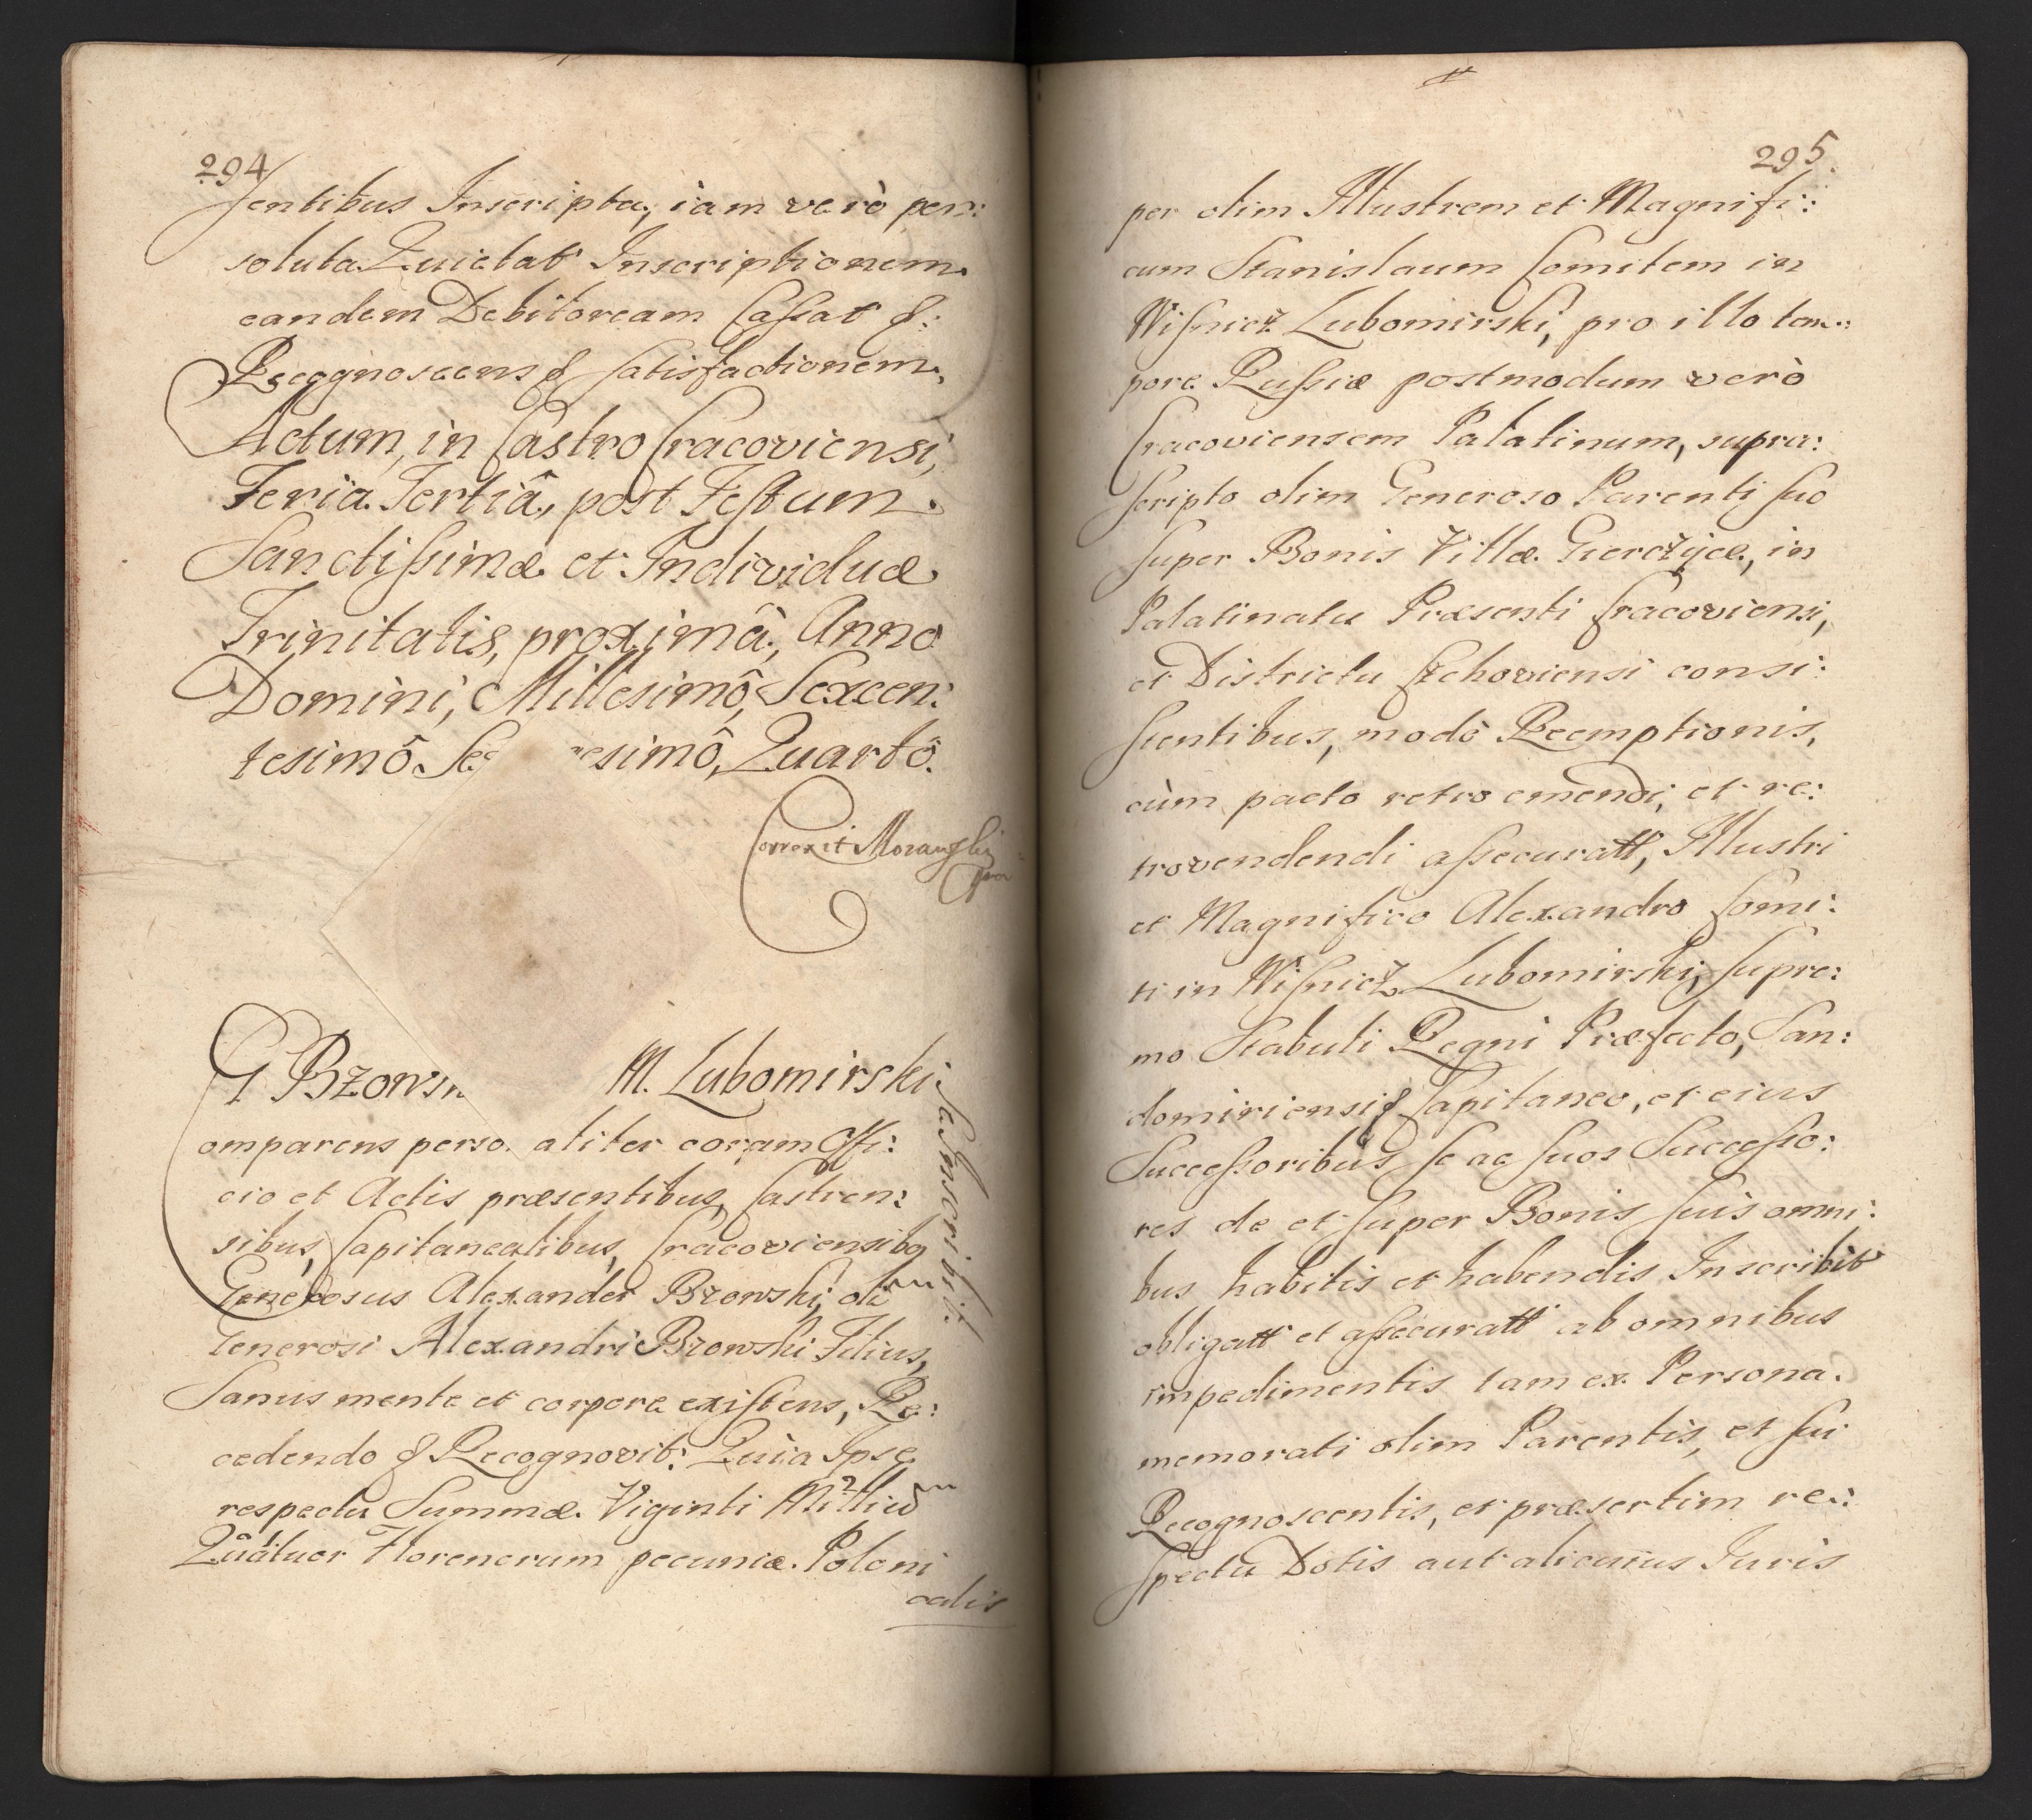 294
sentibus Inscripta, iam verò per:
soluta Quietat Inscriptionem
eandem Debitoream Cassat &:
Recognoscens & satisfactionem.
Actum, in Castro Cracoviensi,
Feria Tertiâ, post Festum
Sanctissimæ et Individuæ
Trinitatis, proximâ, Anno
Domini, Millesimô, Sexcen:
tesimô Se esimô, Quartô.
Correxit
G Brows M. Lubomirski
Inscribit.
omparens perso aliter coram Offi:
cio et Actis præsentibus, Castren:
sibus, Capitanealibus, Cracoviensibq
Generosus Alexander Brzowski, oli
Generosi Alexandri Brzowski Filius,
Sanus mente et corpore existens, Re:
cedendo & Recognovit: Quia Ipse
respectu Summæ Viginti Milliu
Quátuor Florenorum pecuniæ Poloni
calis
295
per olim Illustrem et Magnifi:
cum Stanislaum Comitem in
Wisnicz Lubomirski, pro illo tem:
pore Russiæ postmodum verò
Cracoviensem Palatinum, supra:
scripto olim Generoso Parenti suo
super Bonis Villæ Gierczyce, in
Palatinatu Præsenti Cracoviensi,
et Districtu Szchoviensi consi:
stentibus, modò Reemptionis,
cùm pacto retro emendi, et re:
trovendendi assecuratt, Illustri
et Magnifico Alexandro Comi:
ti in Wisnicz Lubomirski, Supre:
mo Stabuli Regni Præfecto, San:
domiriensi & Capitaneo, et eius
Successoribus, se ac suos Successo:
res de et super Bonis suis omni:
bus habitis et habendis Inscribit
obligatt et assecuratt ab omnibus
impedimentis tam ex Persona
memorati olim Parentis, et sui
Recognoscentis, et præsertim re:
spectu Dotis aut alicuius Iuris